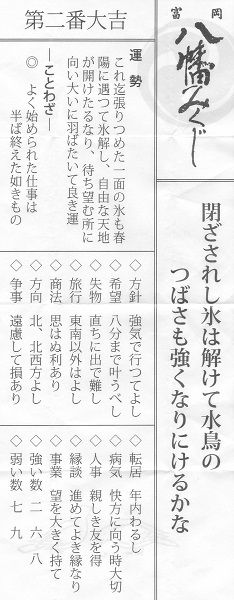 富岡
八幡みくじ
閉ざされし氷は解けて水鳥の
つばさも強くなりにけるかな
第二番大吉
運勢
これ迄張りつめた一面の氷も春
陽に遇つて氷解し、自由な天地
が開けたるなり、待ち望む所に
向い大いに羽ばたいて良き運
―ことわざ―
◎ よく始められた仕事は
半ば終えた如きもの
◇方針 強気で行つてよし
◇希望 八分まで叶うべし
◇失物 直ちに出で難し
◇旅行 東南以外はよし
◇商法 思はぬ利あり
◇方向 北、北西方よし
◇争事 遠慮して損あり
◇転居 年内わるし
◇病気 快方に向う時大切
◇人事 親しき友を得
◇縁談 進めてよき縁なり
◇事業 望を大きく持て
◇強い数 二 六 八
◇弱い数 七 九